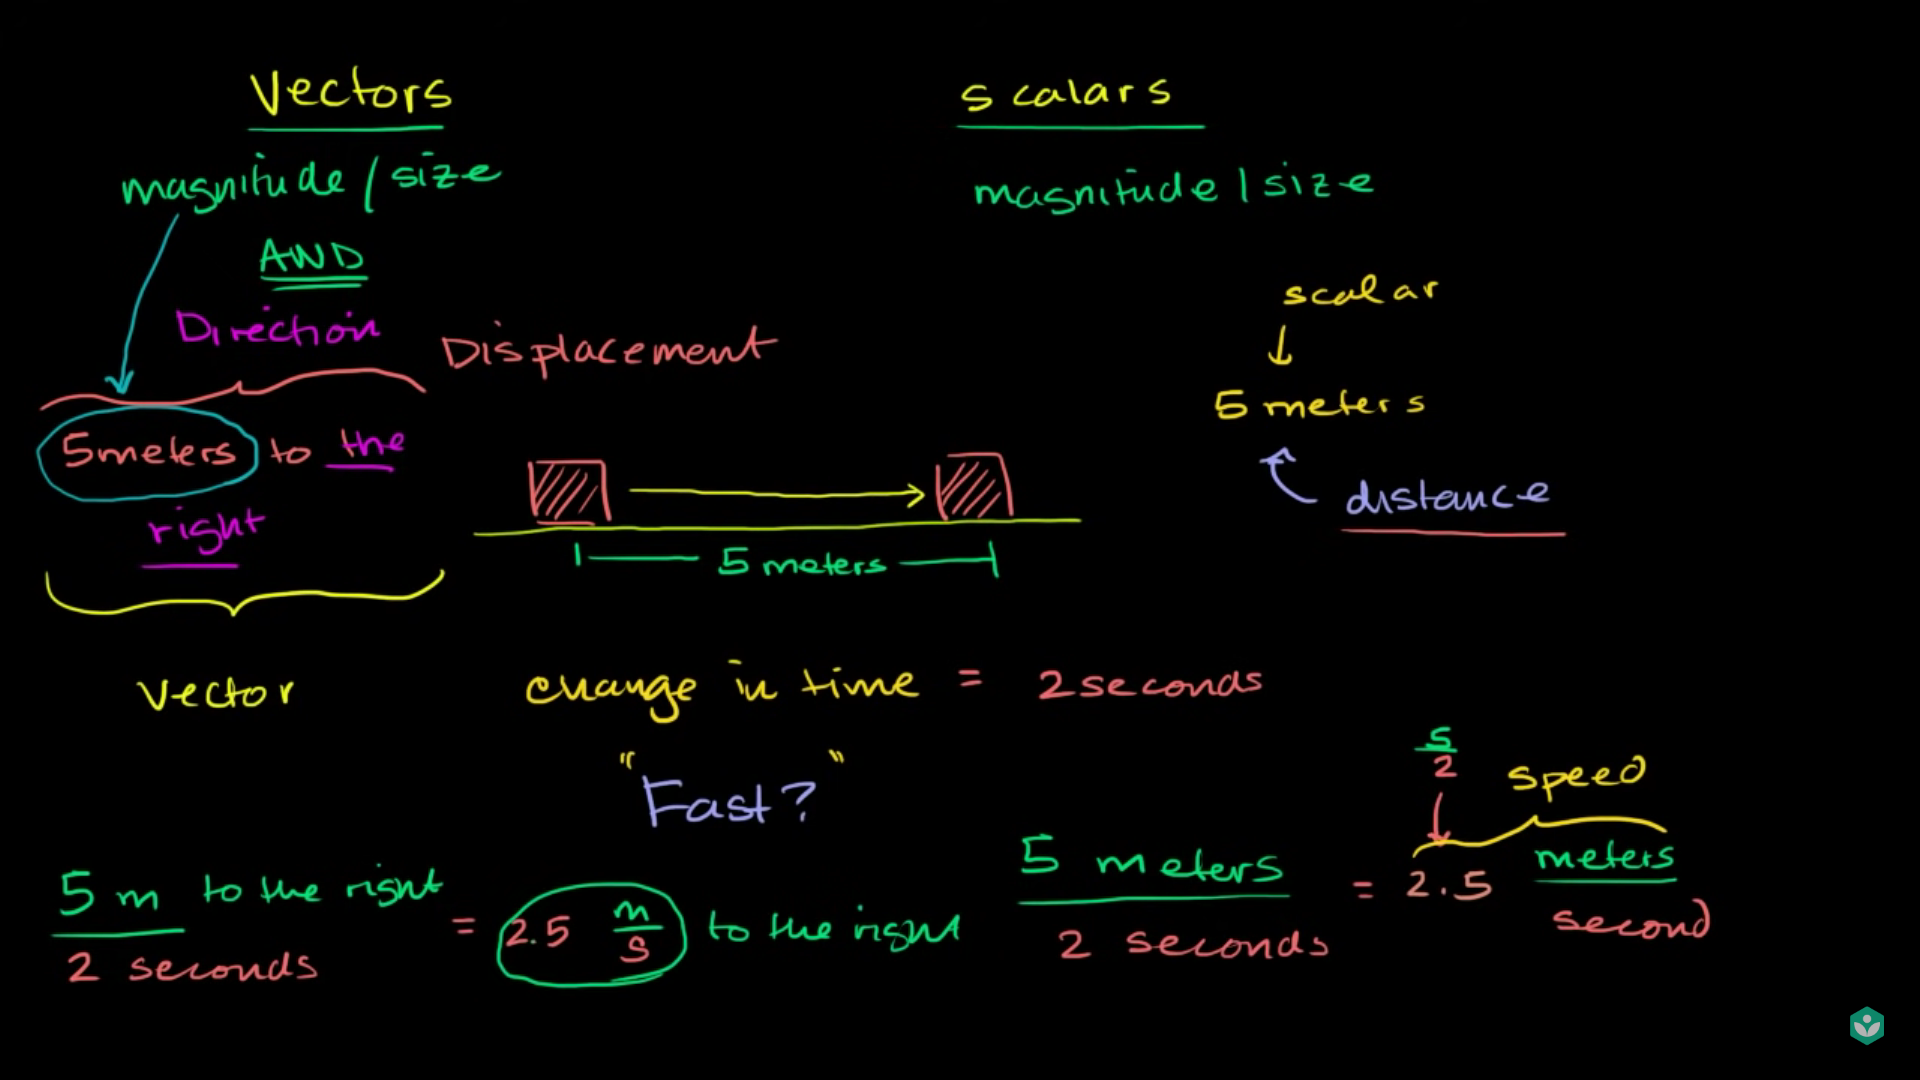 Vectors
magnitude / size
AND
Direction
Displacement
5 meters to the
right
vector
scalars
magnitude | size
scalar
5 meters
distance
5 meters
change in time = 2 seconds
"Fast?"
5 m to the right
2 seconds
= 2.5 m
s
to the right
5 meters
2 seconds
= 2.5 meters
second
5
2
speed